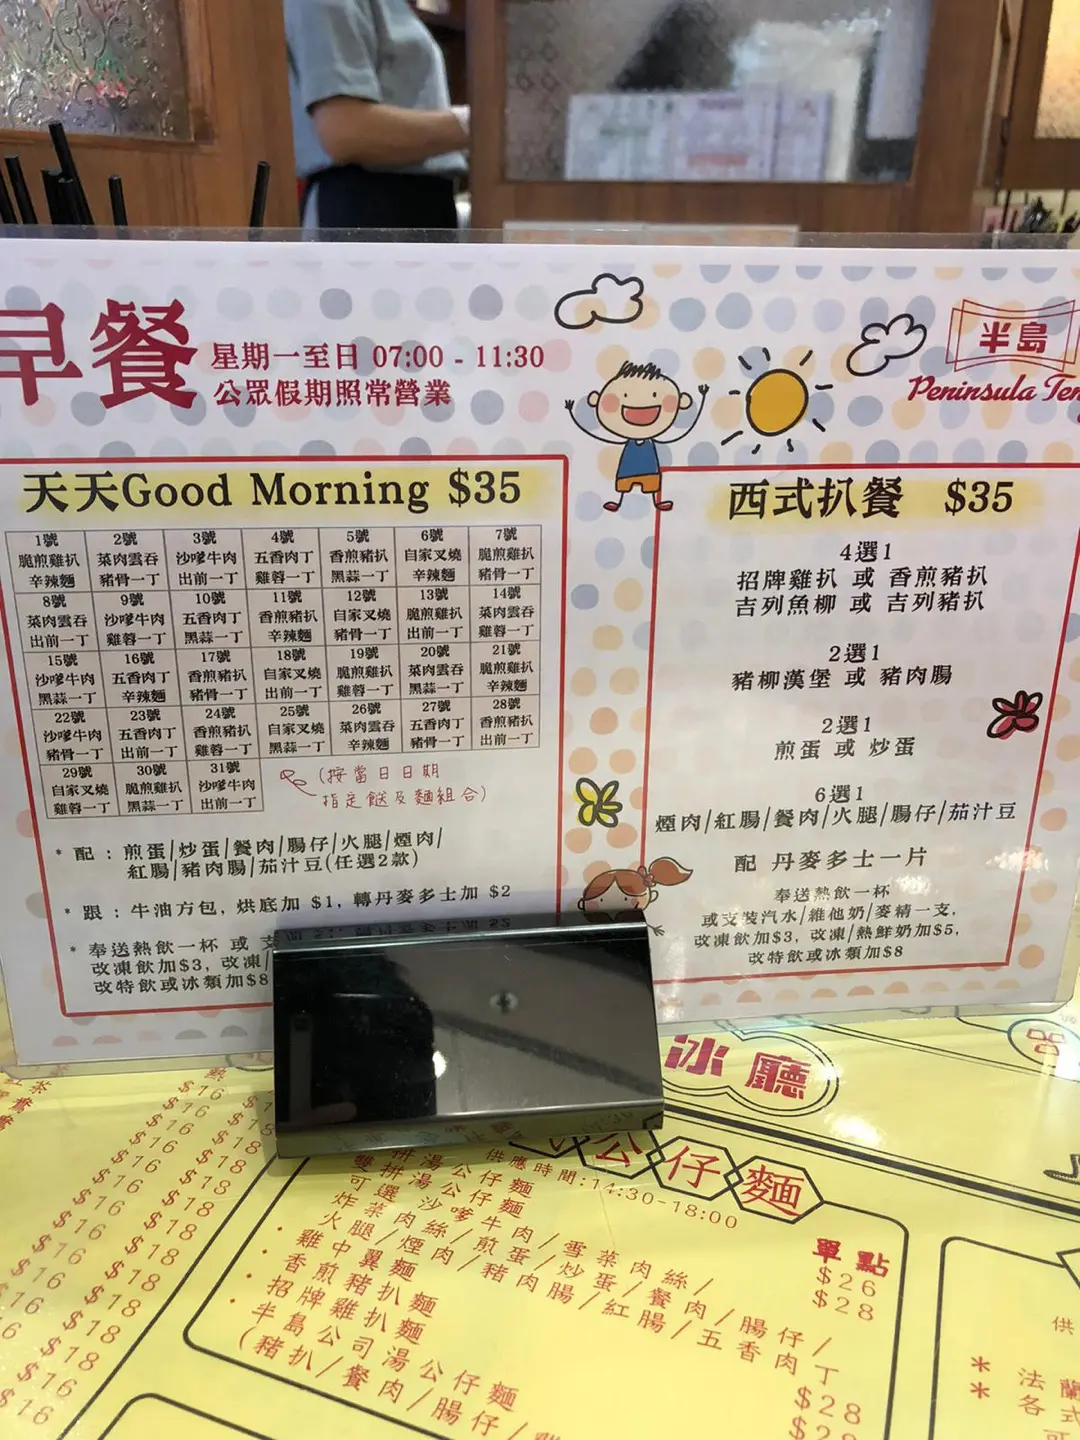 早餐
星期一至日 07:00 - 11:30
公眾假期照常營業
半島
Peninsula
天天Good Morning $35
1號 2號 3號 4號 5號 6號 7號
脆煎雞扒 菜肉雲吞 沙嗲牛肉 五香肉丁 香煎豬扒 自家叉燒 脆煎雞扒
辛辣麵 豬骨一丁 出前一丁 雞蓉一丁 黑蒜一丁 辛辣麵 豬骨一丁
8號 9號 10號 11號 12號 13號 14號
菜肉雲吞 沙嗲牛肉 五香肉丁 香煎豬扒 自家叉燒 脆煎雞扒 菜肉雲吞
出前一丁 雞蓉一丁 黑蒜一丁 辛辣麵 豬骨一丁 出前一丁 雞蓉一丁
15號 16號 17號 18號 19號 20號 21號
沙嗲牛肉 五香肉丁 香煎豬扒 自家叉燒 脆煎雞扒 菜肉雲吞 脆煎雞扒
黑蒜一丁 辛辣麵 豬骨一丁 出前一丁 雞蓉一丁 黑蒜一丁 辛辣麵
22號 23號 24號 25號 26號 27號 28號
沙嗲牛肉 五香肉丁 香煎豬扒 自家叉燒 菜肉雲吞 五香肉丁 香煎豬扒
豬骨一丁 出前一丁 雞蓉一丁 黑蒜一丁 辛辣麵 豬骨一丁 出前一丁
29號 30號 31號
自家叉燒 脆煎雞扒 沙嗲牛肉
雞蓉一丁 黑蒜一丁 出前一丁
(按當日日期
指定餸及麵組合)
* 配 : 煎蛋/炒蛋/餐肉/腸仔/火腿/煙肉/
紅腸/豬肉腸/茄汁豆(任選2款)
* 跟 : 牛油方包, 烘底加 $1, 轉丹麥多士加 $2
* 奉送熱飲一杯 或 支
改凍飲加$3, 改凍/
改特飲或冰類加$8
西式扒餐 $35
4選1
招牌雞扒 或 香煎豬扒
吉列魚柳 或 吉列豬扒
2選1
豬柳漢堡 或 豬肉腸
2選1
煎蛋 或 炒蛋
6選1
煙肉/紅腸/餐肉/火腿/腸仔/茄汁豆
配 丹麥多士一片
奉送熱飲一杯
或支裝汽水/維他奶/麥精一支,
改凍飲加$3, 改凍/熱鮮奶加$5,
改特飲或冰類加$8
冰廳
公仔麵
供應時間:14:30-18:00
單點
拼湯公仔麵 $26
雙拼湯公仔麵 $28
可選 沙嗲牛肉/雪菜肉絲/
炸菜肉絲/煎蛋/炒蛋/餐肉/腸仔/
火腿/煙肉/豬肉腸/紅腸/五香肉丁
· 雞中翼麵 $28
· 香煎豬扒麵
· 招牌雞扒麵
· 半島公司湯公仔麵
(豬扒/餐肉/腸仔/
$16 $18
$16 $18
$16 $18
$16 $18
$16 $18
$16 $18
$16 $18
$16
$16
供
* 法蘭
* 各式
可